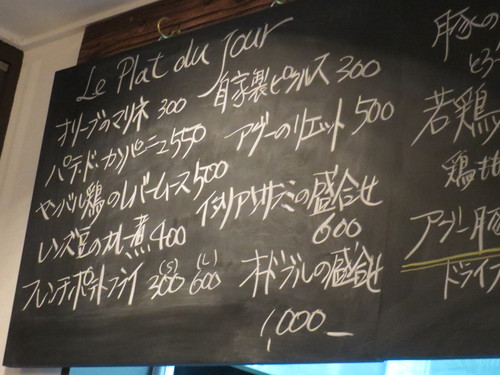 Le Plat du Jour
オリーブのマリネ 300
パテ・ド・カンパーニュ 550
ヤンバル鶏のレバームース 500
レンズ豆のカレー煮 400
フレンチポテトフライ (S) 300 (L) 600
自家製ピクルス 300
アグーのリエット 500
イタリアサラミの盛合せ
600
オードブルの盛合せ
1,000
豚の
とろ
若鶏
鶏も
アグー豚
ドライ